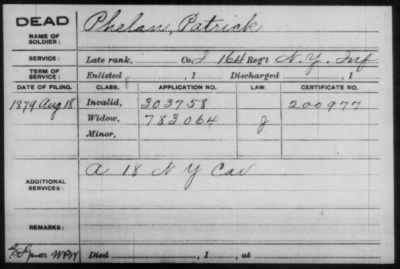 DEAD
NAME OF SOLDIER: Phelan, Patrick
SERVICE: Late rank, Co. I 164 Reg't N.Y. Inf
TERM OF SERVICE: Enlisted , 1 Discharged , 1
DATE OF FILING. CLASS. APPLICATION NO. LAW. CERTIFICATE NO.
1879 Aug 18 Invalid, 303758 200977
Widow, 783064 J
Minor,
ADDITIONAL SERVICES: A 18 N Y Cav
REMARKS:
Died , 1 , at